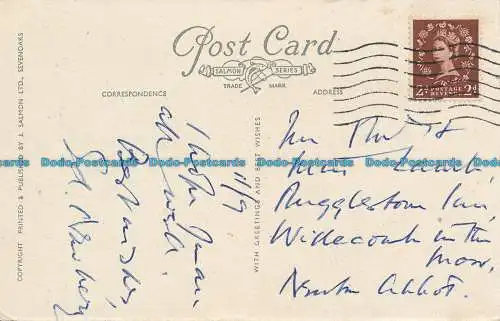 Post Card
SALMON SERIES
TRADE MARK
CORRESPONDENCE
ADDRESS
2D POSTAGE REVENUE 2D
COPYRIGHT PRINTED & PUBLISHED BY J. SALMON LTD., SEVENOAKS
WITH GREETINGS AND BEST WISHES
11/9
I hope
all well.
Best wishes,
Newbery
Lamb,
Rugglestone Inn,
Widecombe in the
Moor,
Newton Abbot.
Dodo-Postcards Dodo-Postcards Dodo-Postcards Dodo-Postcards Dodo-Postcards